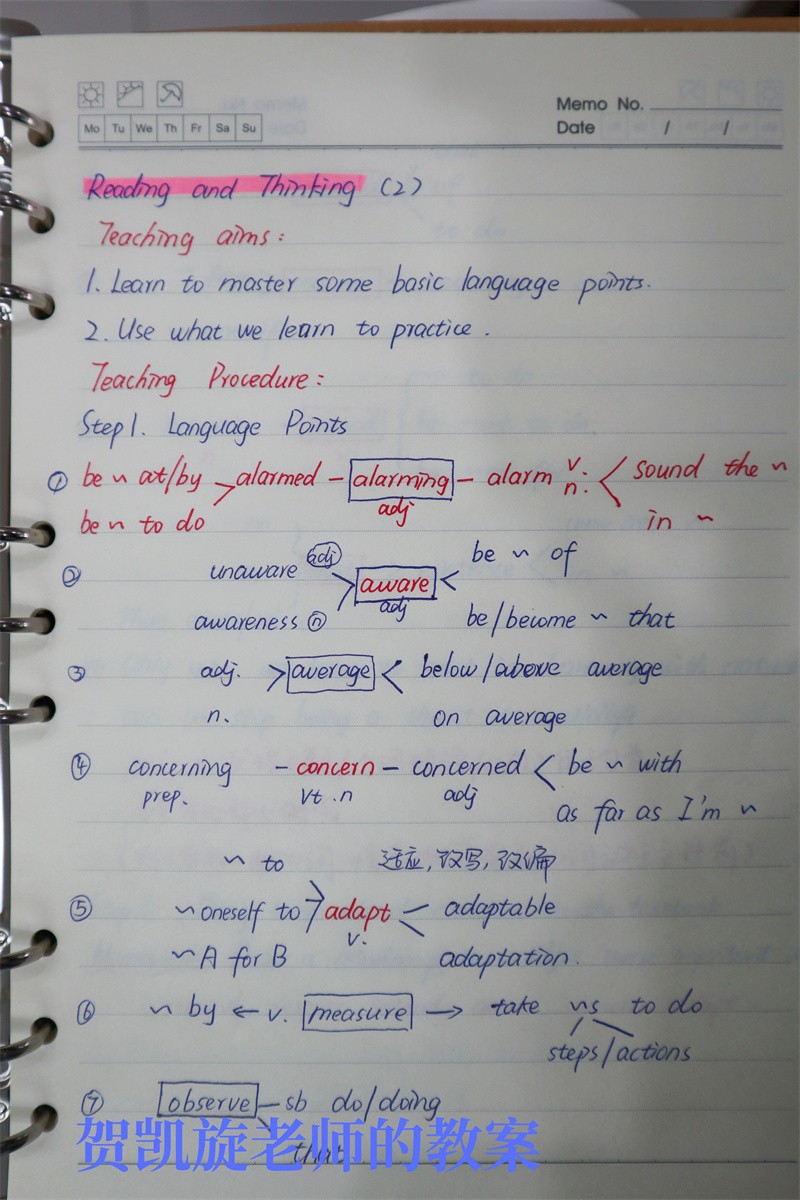 Memo No.
Mo Tu We Th Fr Sa Su
Date / /
Reading and Thinking (2)
Teaching aims:
1. Learn to master some basic language points.
2. Use what we learn to practice.
Teaching Procedure:
Step 1. Language Points
① be ~ at/by > alarmed - alarming - alarm v. n. < sound the ~
be ~ to do adj in ~
② unaware adj > aware < be ~ of
awareness n adj be/become ~ that
③ adj. > average < below/above average
n. on average
④ concerning - concern - concerned < be ~ with
prep. vt. n adj as far as I'm ~
~ to 适应,改写,改编
⑤ ~ oneself to > adapt < adaptable
v.
~ A for B adaptation.
⑥ ~ by ← v. measure → take ~s to do
steps/actions
⑦ observe - sb do/doing
that
贺凯旋老师的教案